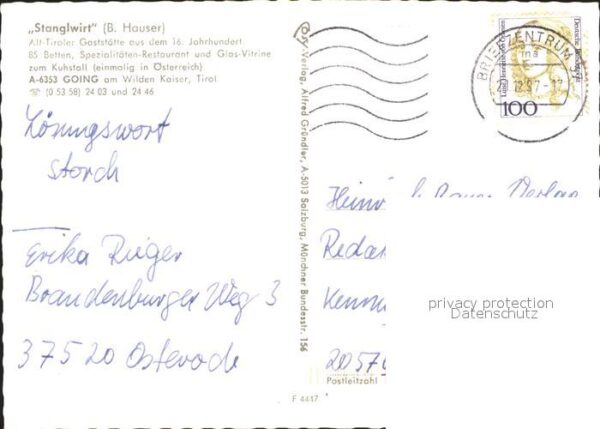 „Stanglwirt" (B. Hauser)
Alt-Tiroler Gaststätte aus dem 16. Jahrhundert
85 Betten, Spezialitäten-Restaurant und Glas-Vitrine
zum Kuhstall (einmalig in Österreich)
A-6353 GOING am Wilden Kaiser, Tirol
☏ (0 53 58) 24 03 und 24 46
Lösungswort
Storch
Erika Rieger
Brandenburger Weg 3
37520 Osterode
Cosy-Verlag, Alfred Gründler, A-5013 Salzburg, Münchner Bundesstr. 156
F 4447
BRIEFZENTRUM
100
Deutsche Bundespost
Heinr
Redak
2057
Postleitzahl
privacy protection
Datenschutz